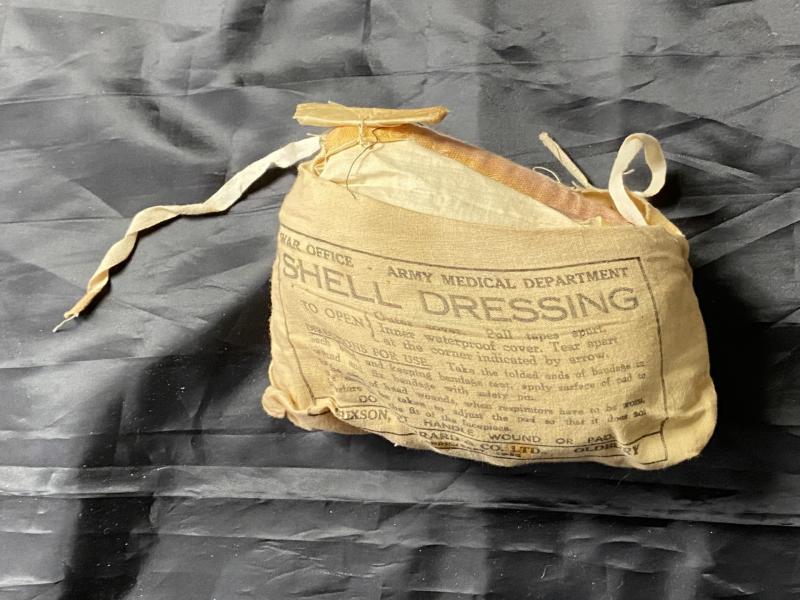 WAR OFFICE ARMY MEDICAL DEPARTMENT
SHELL DRESSING
TO OPEN { Outer cover. Pull tapes apart.
Inner waterproof cover. Tear apart
at the corner indicated by arrow.
DIRECTIONS FOR USE Take the folded ends of bandage in
each and keeping bandage taut, apply surface of pad to
wound and fix bandage with safety pin.
of head wounds, when respirators have to be worn,
taken to adjust the pad so that it does not
the fit of the facepiece.
DO HANDLE WOUND OR PAD
RIXSON, & CO. LTD. OLDBURY